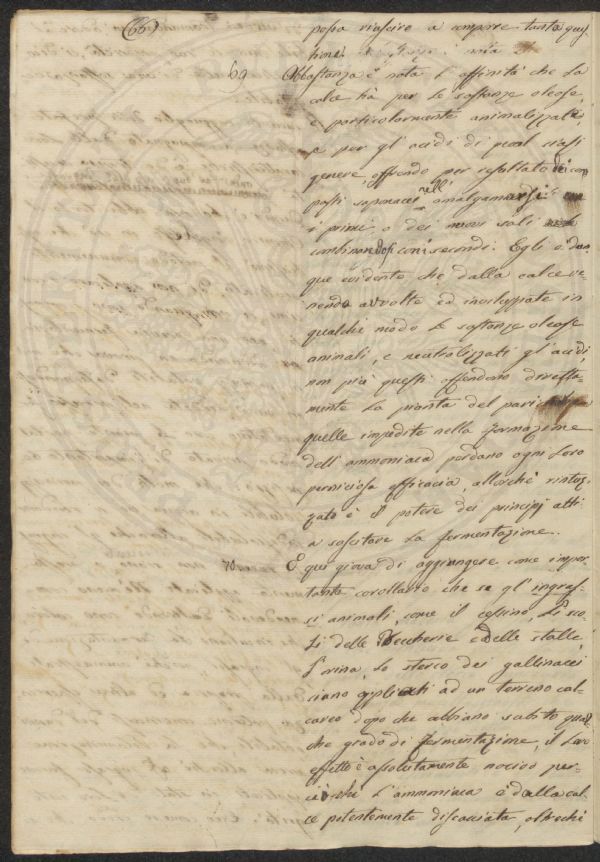 (66)
possa riuscire a compire tanta qui-
stione.
69 Abbastanza è nota l'affinità che la
calce ha per le sostanze oleose,
e particolarmente animalizzate,
e per gl'acidi di penal siasi
genere, offrendo per resultato dei com
posti saponacei nell' amalgamarsi con
i primi, o dei nuovi sali
combinandosi con i secondi. Egli è dun
que evidente che dalla calce ve
nendo avvolte ed inviluppate in
qualche modo le sostanze oleose
animali, e neutralizzati gl'acidi,
non più questi offendono diretta-
mente la pianta del pari che
quelle impedite nella formazione
dell'ammoniaca perdano ogni loro
perniciosa efficacia, allorchè rintuz
zato è il potere dei principj atti
a suscitare la fermentazione.
70. E qui giova di aggiungere come impor
tante corollario che se gl'ingras-
si animali, come il cessino, li sco-
li delle Beccherie e delle stalle,
l'orina, lo sterco dei gallinacei
siano applicati ad un terreno cal
careo dopo che abbiano subito qual
che grado di fermentazione, il loro
effetto è assolutamente nocivo per-
ciocchè l'ammoniaca è dalla cal
ce potentemente discacciata, oltrechè